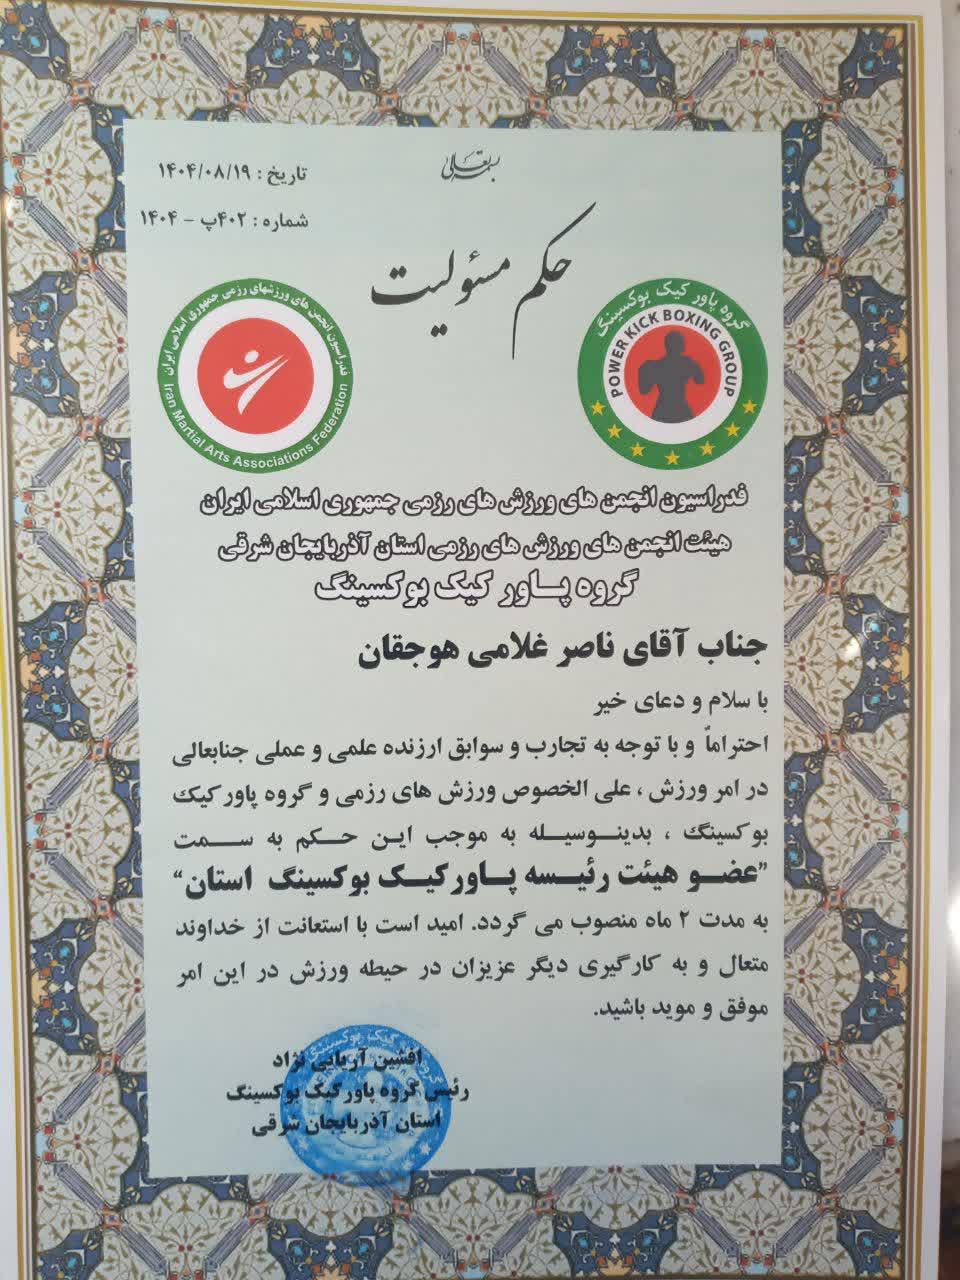 بسمه تعالی
تاریخ : ۱۴۰۴/۰۸/۱۹
شماره : ۴۰۲پ - ۱۴۰۴
حکم مسئولیت
فدراسیون انجمن های ورزشهای رزمی جمهوری اسلامی ایران
Iran Martial Arts Associations Federation
گروه پاور کیک بوکسینگ
POWER KICK BOXING GROUP
فدراسیون انجمن های ورزش های رزمی جمهوری اسلامی ایران
هیئت انجمن های ورزش های رزمی استان آذربایجان شرقی
گروه پاور کیک بوکسینگ
جناب آقای ناصر غلامی هوجقان
با سلام و دعای خیر
احتراماً و با توجه به تجارب و سوابق ارزنده علمی و عملی جنابعالی
در امر ورزش ، علی الخصوص ورزش های رزمی و گروه پاورکیک
بوکسینگ ، بدینوسیله به موجب این حکم به سمت
"عضو هیئت رئیسه پاورکیک بوکسینگ استان"
به مدت ۲ ماه منصوب می گردد. امید است با استعانت از خداوند
متعال و به کارگیری دیگر عزیزان در حیطه ورزش در این امر
موفق و موید باشید.
افشین آریایی نژاد
رئیس گروه پاورکیک بوکسینگ
استان آذربایجان شرقی